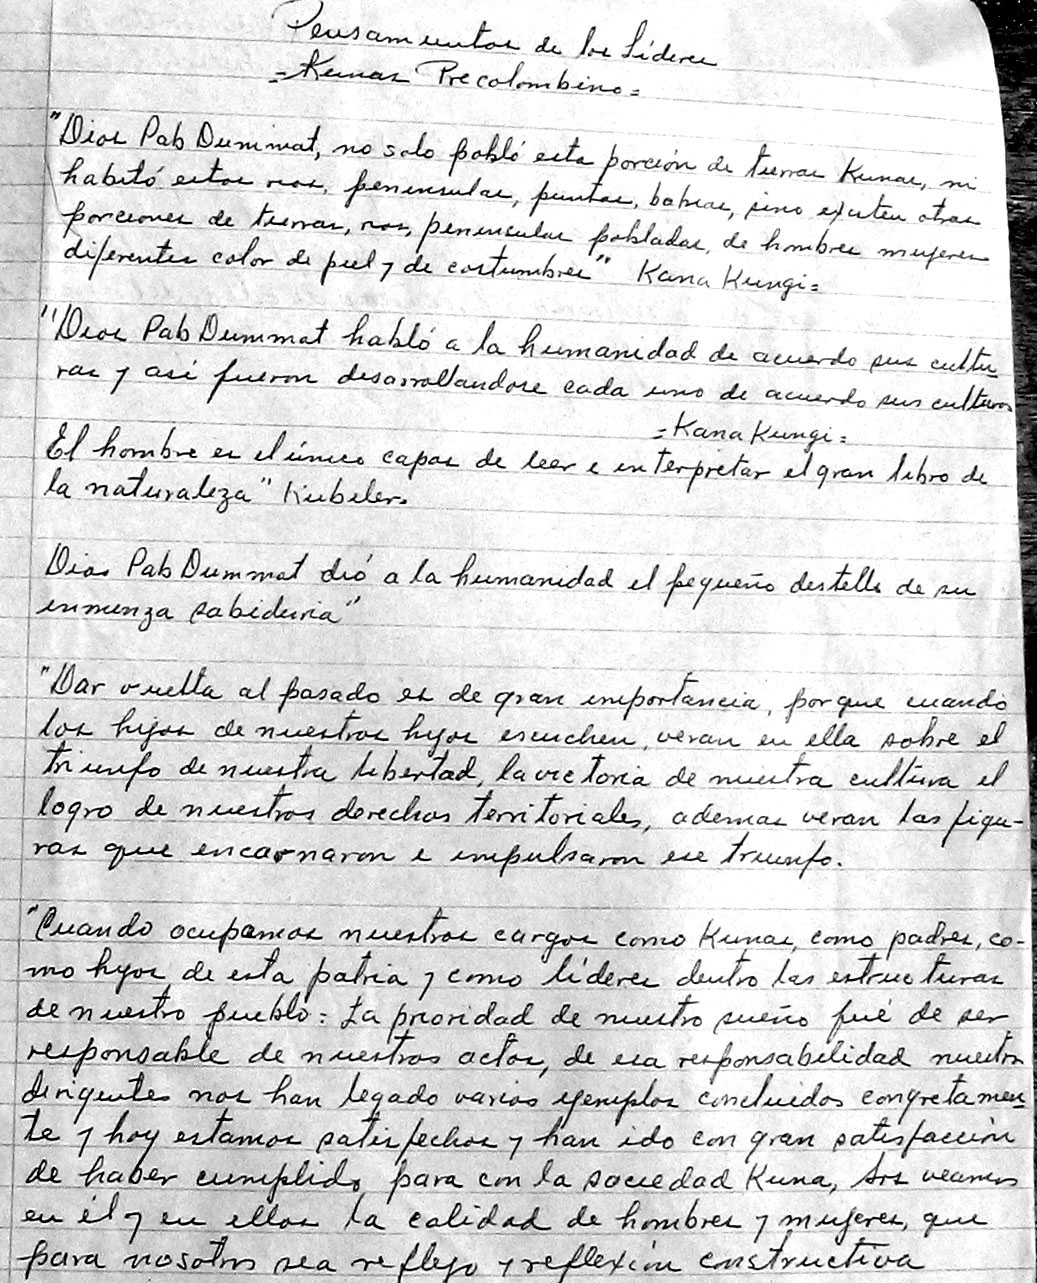 Pensamientos de los Líderes
=Kunas Precolombino=
"Dios Pab Dummat, no solo pobló esta porción de tierras Kunas, ni
habitó estos rios, peninsulas, puntas, bahias, sino existen otras
porciones de tierras, rios, peninsulas pobladas, de hombres mujeres
diferentes color de piel y de costumbres" Kana Kungi=
"Dios Pab Dummat habló a la humanidad de acuerdo sus cultu
ras y así fueron desarrollandose cada uno de acuerdo sus culturas
=Kana Kungi=
El hombre es el único capas de leer e interpretar el gran libro de
la naturaleza" Kubiler.
Dios Pab Dummat dió a la humanidad el pequeño destello de su
inmenza sabiduria"
"Dar vuelta al pasado es de gran importancia, porque cuando
los hijos de nuestros hijos escuchen, veran en ella sobre el
triunfo de nuestra libertad, la victoria de nuestra cultura el
logro de nuestros derechos territoriales, ademas veran las figu-
ras que encarnaron e impulsaron ese triunfo.
"Cuando ocupamos nuestros cargos como Kunas, como padres, co-
mo hijos de esta patria y como líderes dentro las estructuras
de nuestro pueblo: La prioridad de nuestro sueño fué de ser
responsable de nuestros actos, de esa responsabilidad nuestros
dirigentes nos han legado varios ejemplos concluidos congretamen
te y hoy estamos satisfechos y han ido con gran satisfacción
de haber cumplido para con la sociedad Kuna, veamos
en él y en ellos la calidad de hombres y mujeres, que
para nosotros sea reflejo y reflexión constructiva